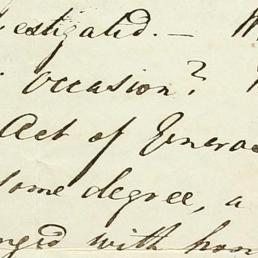 estigated. — W
occasion?
Act of Emanc
some degree, a
nged with hon